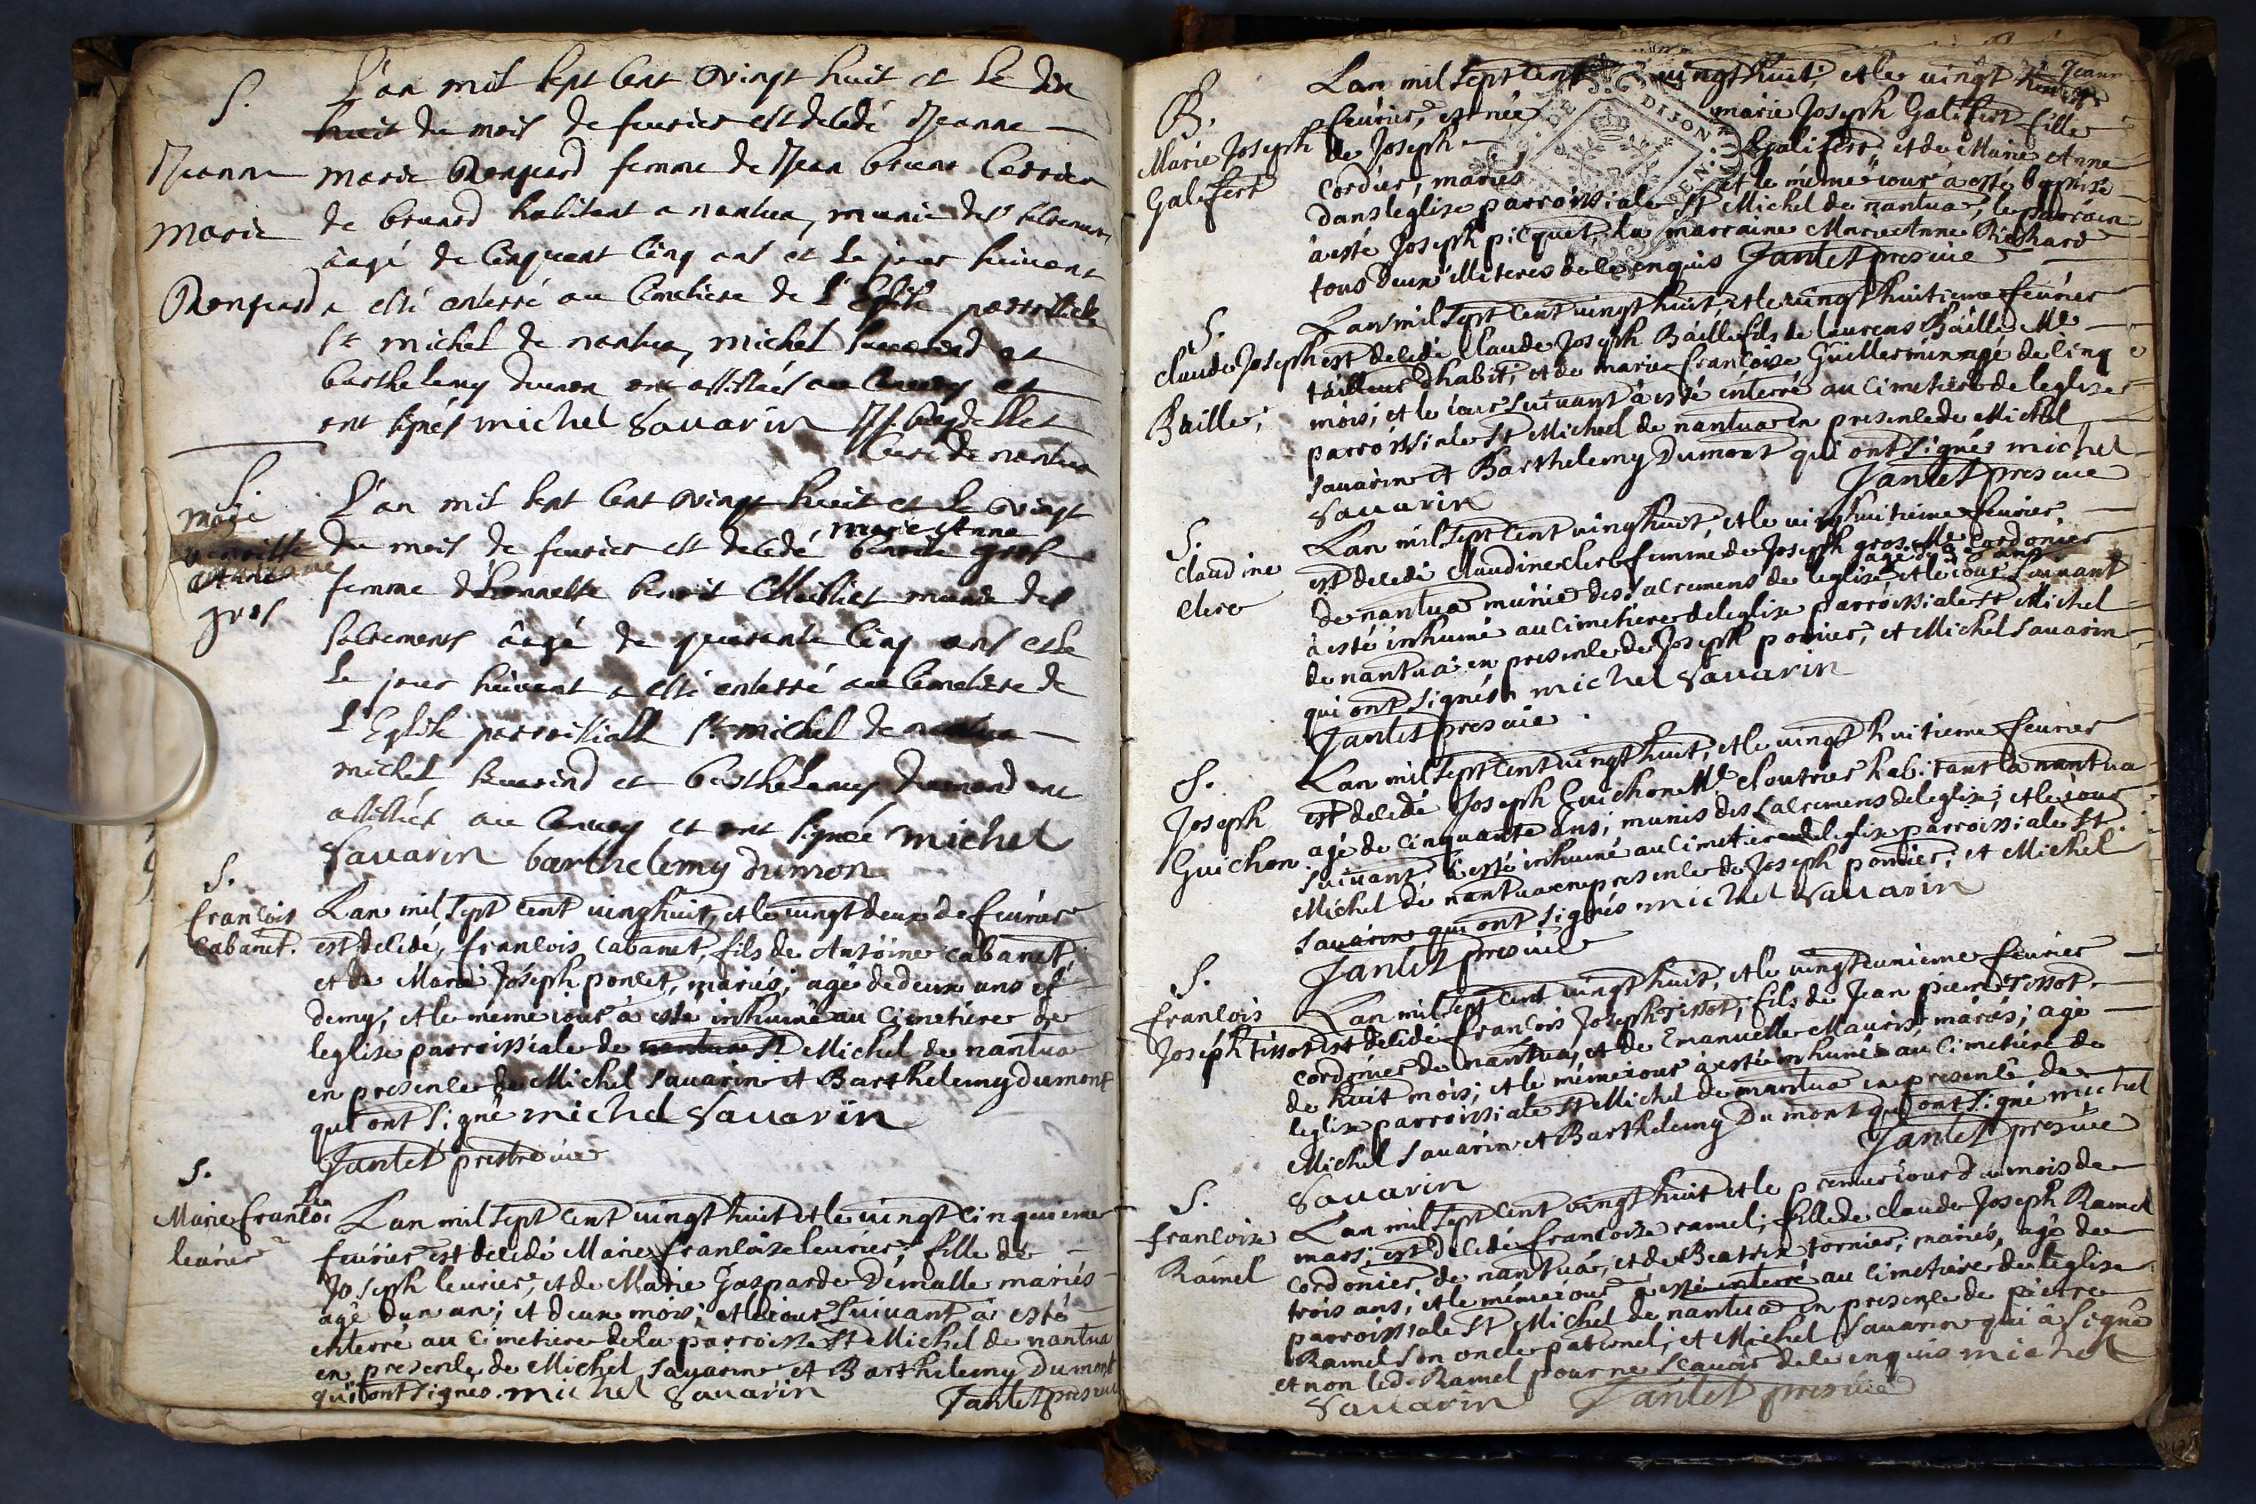 S.
Jeanne
marie
L'an mil sept cent vingt huit et le dix
huit du mois de fevrier est decedé Jeanne
marie femme de Jean
de habitant a nantua, munie des sacremens
âagé de cinquent cinq ans et le jour suivent
a esté enterré au Cimetiere de l'Eglise parroissiale
st michel de nantua, michel et
barthelemy dumon ont assistés au Convoy et
ont signés michel Savarin
Curé de nantua
S.
marie
Anne
gros
L'an mil sept cent vingt huit et le vingt
du mois de fevrier est decedé marie Anne gros
femme d'honneste benoit munie des
sacrements âagé de quarente cinq ans et le
le jour suivent a esté enterré au Cimetiere de
L'Eglise parroissialle st michel de nantua
michel et barthelemy dumond ont
assistés au Convoy et ont signéé michel
Savarin barthelemy dumon
S.
francois
Cabanet.
Lan mil sept cent vinghuit, et le vingt deux de fevrier
est decedé, francois Cabanet, fils de Antoine cabanet
et de Marie Joseph poncet, mariés; agé de deux ans et
demy; et le meme iour a esté inhumé au Cimetiere de
leglise parroissiale de nantua St Michel de nantua
en presence de Michel Savarin et Barthelemy dumont
qui ont signé michel Savarin
Jantet prestre vic
S.
Marie francoise
levrier
Lan mil sept cent vingt huit et le vingt cinquieme
fevrier est decedé Marie francoise levrier; fille de
Joseph levrier, et de Marie Gasparde Démalle mariés
agé dun an; et deux mois; et le iour suivant a esté
enterré au Cimetiere de la parroisse St Michel de nantua
en presence de Michel Savarin et Barthelemy Dumont
qui ont signés. michel Savarin Jantet pres vic
B.
Marie Joseph
Galifert
Lan mil sept cent vingt huit; et le vingt
fevrier, est née marie Joseph Galifert fille
de Joseph Galifert et de Marie Anne
Cordier, mariés et le même iour a esté baptisé
dans leglise parroissiale St Michel de nantua, le parrain
a esté Joseph picquet, la marraine Marie Anne Richard
tous deux illiteres de ce enquis Jantet pres vic
S.
Claude Joseph
Baille;
Lan mil sept cent vingt huit, et le vingt huitieme fevrier
est decedé Claude Joseph Baille fils de laurens Baille Me
tailleur dhabit, et de marie francoise Guillermin agé de cinq
mois; et le iour suivant a esté enterré au cimetiere de leglise
parroissiale St Michel de nantua en presence de Michel
Savarin et Barthelemy Dumont qui ont signés michel
Savarin Jantet pres vic
S.
Claudine
clerc
Lan mil sept cent vinghuit, et le vinghuitieme fevrier,
est decedé Claudine clerc femme de Joseph gros Me Cordonier
de nantua munie des sacremens de leglise, et le iour suivant
a esté inhumé au cimetiere de leglise parroissiale St Michel
de nantua en presence de Joseph pomier, et Michel Savarin
qui ont signés michel Savarin
Jantet pres vic.
S.
Joseph
Guichon
Lan mil sept cent vingt huit, et le vingt huitieme fevrier
est decedé Joseph Guichon Me cloutrier habitant a nantua
agé de cinquante ans; munis des sacremens de leglise; et le iour
suivant a esté inhumé au cimetiere de leglise parroissiale St
Michel de nantua en presence de Joseph pomier, et Michel
Savarin qui ont signés michel Savarin
Jantet pres vic
S.
francois
Joseph tissot
Lan mil sept cent vingt huit, et le vingt eunieme fevrier
est decedé francois Joseph tissot; fils de Jean pierre tissot
cordonier de nantua, et de Emanuelle Maurier mariés; agé
de huit mois; et le même iour a esté inhumé au cimetiere de
leglise parroissiale St Michel de nantua en presence de
Michel Savarin et Barthelemy Dumont qui ont signé michel
Savarin Jantet pres vic
S.
francoise
Ramel
Lan mil sept cent vingt huit et le premier iour du mois de
mars; est decedé francoise ramel; fille de Claude Joseph Ramel
cordonier de nantua, et de Beatrix tornier; mariés, agé de
trois ans; et le même iour a esté enterré au cimetiere de leglise
parroissiale St Michel de nantua en presence de pierre
Ramel son oncle paternel; et Michel Savarin qui a signé
et non led. Ramel pour ne scavoir de ce enquis michel
Savarin Jantet pres vic